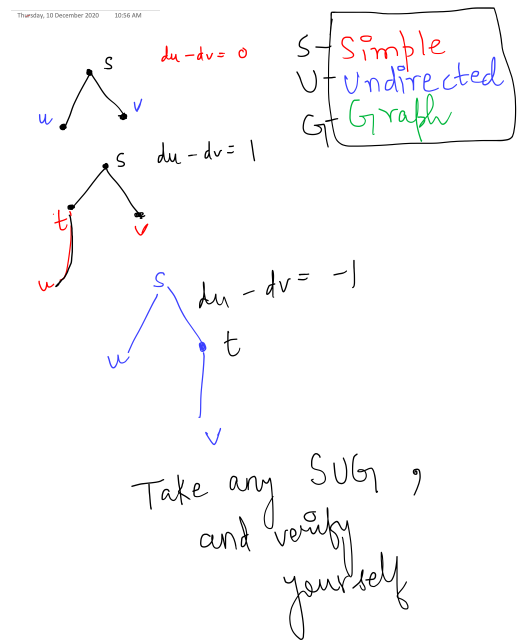 Thursday, 10 December 2020 10:56 AM
S
du - dv = 0
u
v
S - Simple
U - Undirected
G - Graph
S
du - dv = 1
t
v
u
S
du - dv = -1
t
u
v
Take any SUG,
and verify
yourself